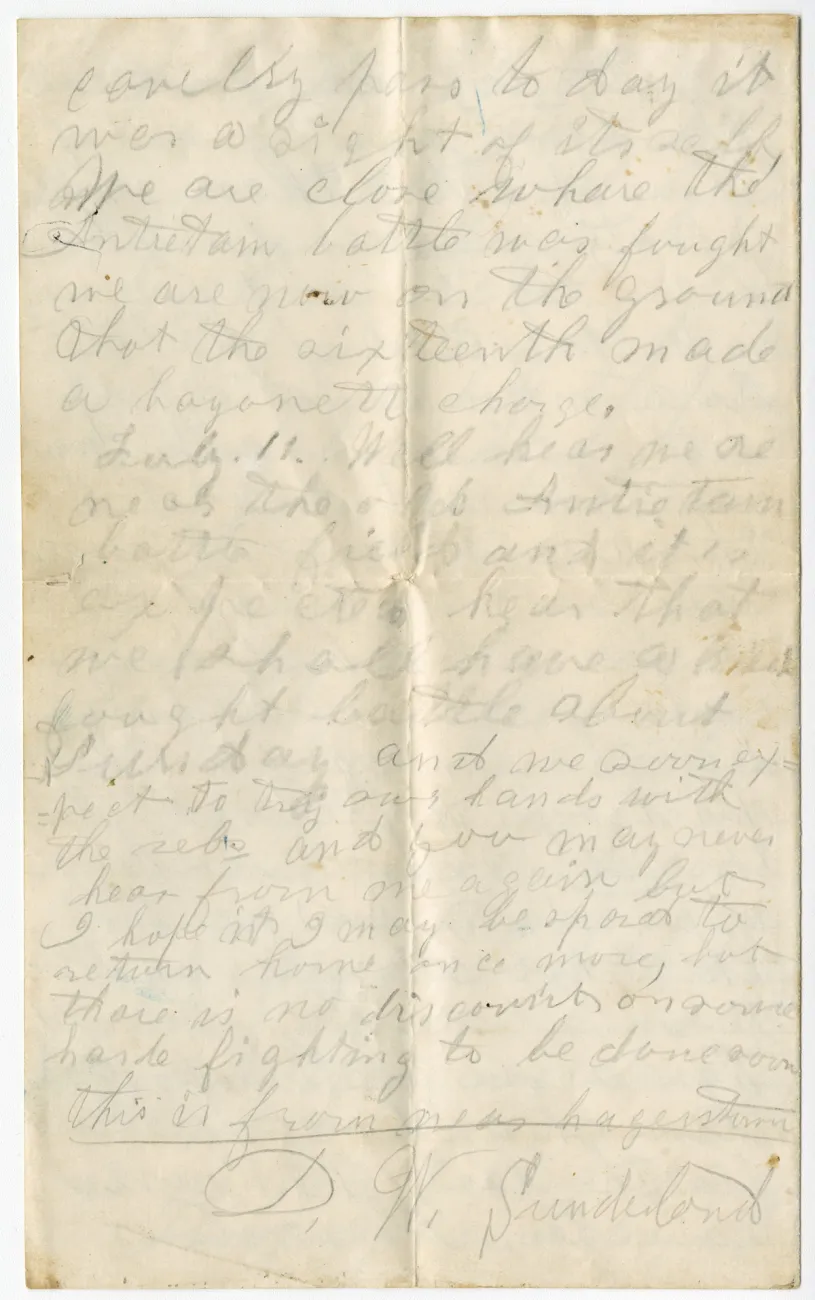 cavelry pass to day it
was a sight of its self
We are close whare the
Antietam battle was fought
we are now on the ground
that the sixteenth made
a bayonett charge.
July. 11. Well hear we are
near the old Antietam
battle field and it is
expected hear that
we shall have a
fought battle about
Sunday and we soon ex=
=pect to try our hands with
the rebs and you may never
hear from me again but
I hope it I may be spared to
return home once more, but
thare is no discount on some
harde fighting to be done soon
this is from near hagerstown
D. W. Sunderland